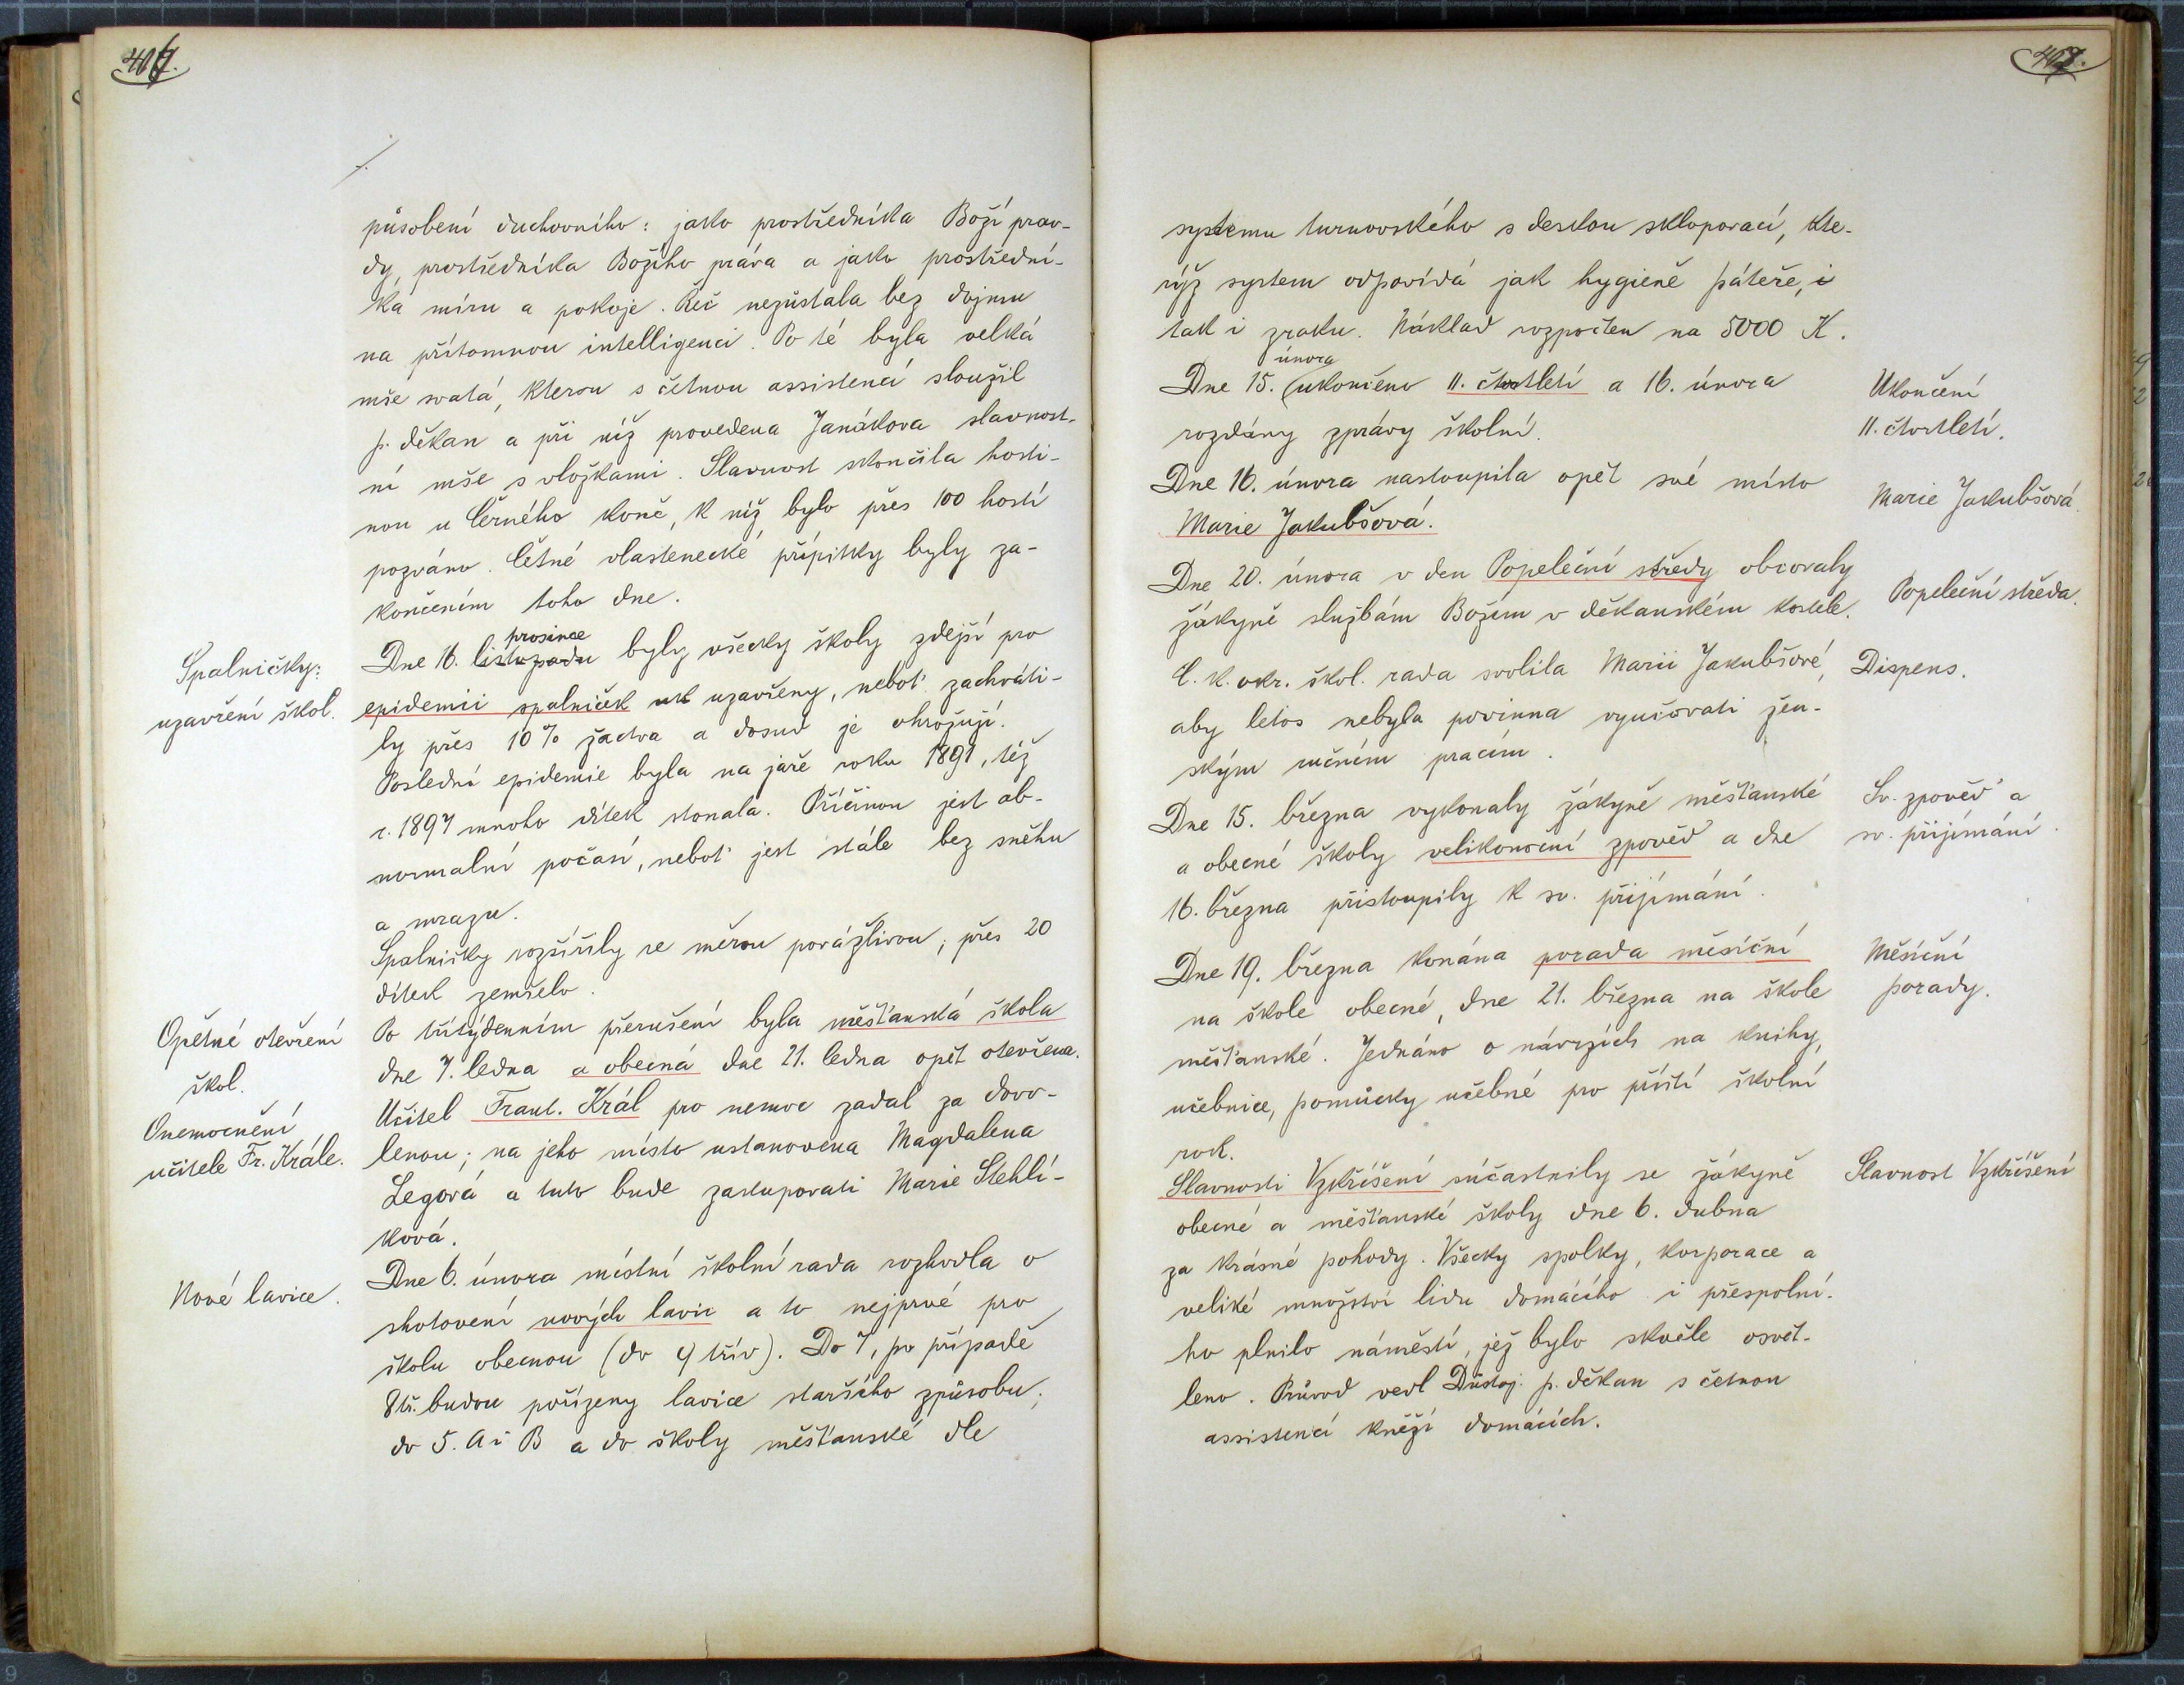 působení duchovního: jako prostředníka Boží prav-
dy, prostředníka Božího práva a jako prostřední-
ka míru a pokoje. Řeč nezůstala bez dojmu
na přítomnou intelligenci. Po té byla velká
mše svatá, kterou s četnou assistencí sloužil
p. děkan a při níž provedena Janákova slavnost-
ní mše s vložkami. Slavnost skončila hosti-
nou u Černého koně, k níž bylo přes 100 hostí
pozváno. Četné vlastenecké přípitky byly za-
končením toho dne.
Spalničky:
uzavření škol.
prosince
Dne 16. listopadu byly všecky školy zdejší pro
epidemii spalniček uzavřeny, neboť zachváti-
ly přes 10% žactva a dosud je ohrožují.
Poslední epidemie byla na jaře roku 1891, též
r. 1897 mnoho dítek stonala. Příčinou jest ab-
normalní počasí, neboť jest stále bez sněhu
a mrazu.
Spalničky rozšířily se měrou povážlivou; přes 20
dítek zemřelo.
Opětné otevření
škol.
Po třítýdenním přerušení byla měšťanská škola
dne 7. ledna a obecná dne 21. ledna opět otevřena.
Onemocnění
učitele Fr. Krále.
Učitel Frant. Král pro nemoc zadal za dovo-
lenou; na jeho místo ustanovena Magdalena
Legová a tuto bude zastupovati Marie Stehlí-
ková.
Nové lavice.
Dne 6. února místní školní rada rozhodla o
shotovení nových lavic a to nejprvé pro
školu obecnou (do 9 tříd). Do 7, po případě
8 tř. budou pořízeny lavice staršího způsobu;
do 5. A i B a do školy měšťanské dle
systemu turnovského s deskou skloporací, kte-
rýž system odpovídá jak hygieně páteře, i
tak i zraku. Náklad rozpočten na 5000 K.
února
Dne 15. ukončeno II. čtvrtletí a 16. února
rozdány zprávy školní.
Ukončení
II. čtvrtletí.
Dne 16. února nastoupila opět své místo
Marie Jakubšová.
Marie Jakubšová.
Dne 20. února v den Popeleční středy obcovaly
žákyně službám Božím v děkanském kostele.
Popeleční středa.
C. k. okr. škol. rada svolila Marii Jakubšové,
aby letos nebyla povinna vyučovati žen-
ským ručním pracím.
Dispens.
Dne 15. března vykonaly žákyně měšťanské
a obecné školy velikonoční zpověď a dne
16. března přistoupily k sv. přijímání.
Sv. zpověď a
sv. přijímání.
Dne 19. března konána porada měsíční
na škole obecné, dne 21. března na škole
měšťanské. Jednáno o návrzích na knihy,
učebnice, pomůcky učebné pro příští školní
rok.
Měsíční
porady.
Slavnosti Vzkříšení súčastnily se žákyně
obecné a měšťanské školy dne 6. dubna
za krásné pohody. Všecky spolky, korporace a
veliké množství lidu domácího i přespolní-
ho plnilo náměstí, jež bylo skvěle osvět-
leno. Průvod vedl Důstoj. p. děkan s četnou
assistencí kněží domácích.
Slavnost Vzkříšení